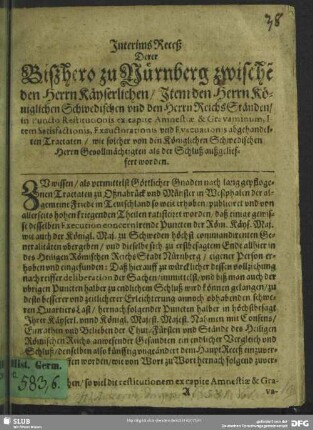 38
Interims Receß
Derer
Bißhero zu Nürnberg zwischē
den Herrn Käyserlichen / Item den Herrn Kö-
niglichen Schwedischen vnd den Herrn Reichs Ständen /
in puncto Restitutionis ex capite Amnestiæ & Gravaminum, I-
tem Satisfactionis, Exauctorationis vnd Evacuationis abgehandel-
ten Tractaten / wie solcher von den Königlichen Schwedischen
Herrn Gevollmächtigten als der Schluß außgelief-
fert worden.
ZV wissen / als vermittelst Göttlicher Gnaden nach lang gepfloge-
nen Tractaten zu Oßnabrück vnd Münster in Westphalen der all-
gemeine Friede in Teutschland so weit erhoben / publicirt vnd von
allerseits hohen kriegenden Theilen ratificiret worden / daß etwar gewis-
se desselben Execution concernirende Puncten der Röm. Käys. May.
wie auch der Königl. May. zu Schweden höchst commandirenten Ge-
neralitäten vbergeben / vnd dieselbe sich zu erstbesagtem Ende allhier in
des Heiligen Römischen Reichs Stadt Nürnberg / eigener Person er-
hoben vnd eingefunden: Daß hierauff zu würcklicher dessen vollziehung
nach reiffer deliberation der Sachen
vbrigen Puncten halber zu endlichem Schluß wird können gelangen / zu
desto besserer vnd zeitlicherer Erleichterung annoch obhabenden schwe-
ren Quartiers Last / hernach folgender Puncten halber in höchstbesagt
Ihrer Käyserl. vnnd Königl. Majest. Majest. Nahmen mit Consens /
Einrathen vnd Belieben der Chur-Fürsten vnd Stände des Heiligen
Römischen Reichs anwesender Gesandten ein endlicher Vergleich vnd
Schluß / denselben also künfftig vngeändert dem Haupt Receß einzuver-
worden / wie von Wort zu Wort hernach folgend zuver-
so viel die restitutionem ex capite Amnestiæ & Gra-
va-
Hist. Germ.
C.
583,6.
SLUB
Wir führen Wissen.
gefördert von der
Deutschen Forschungsgemeinschaft